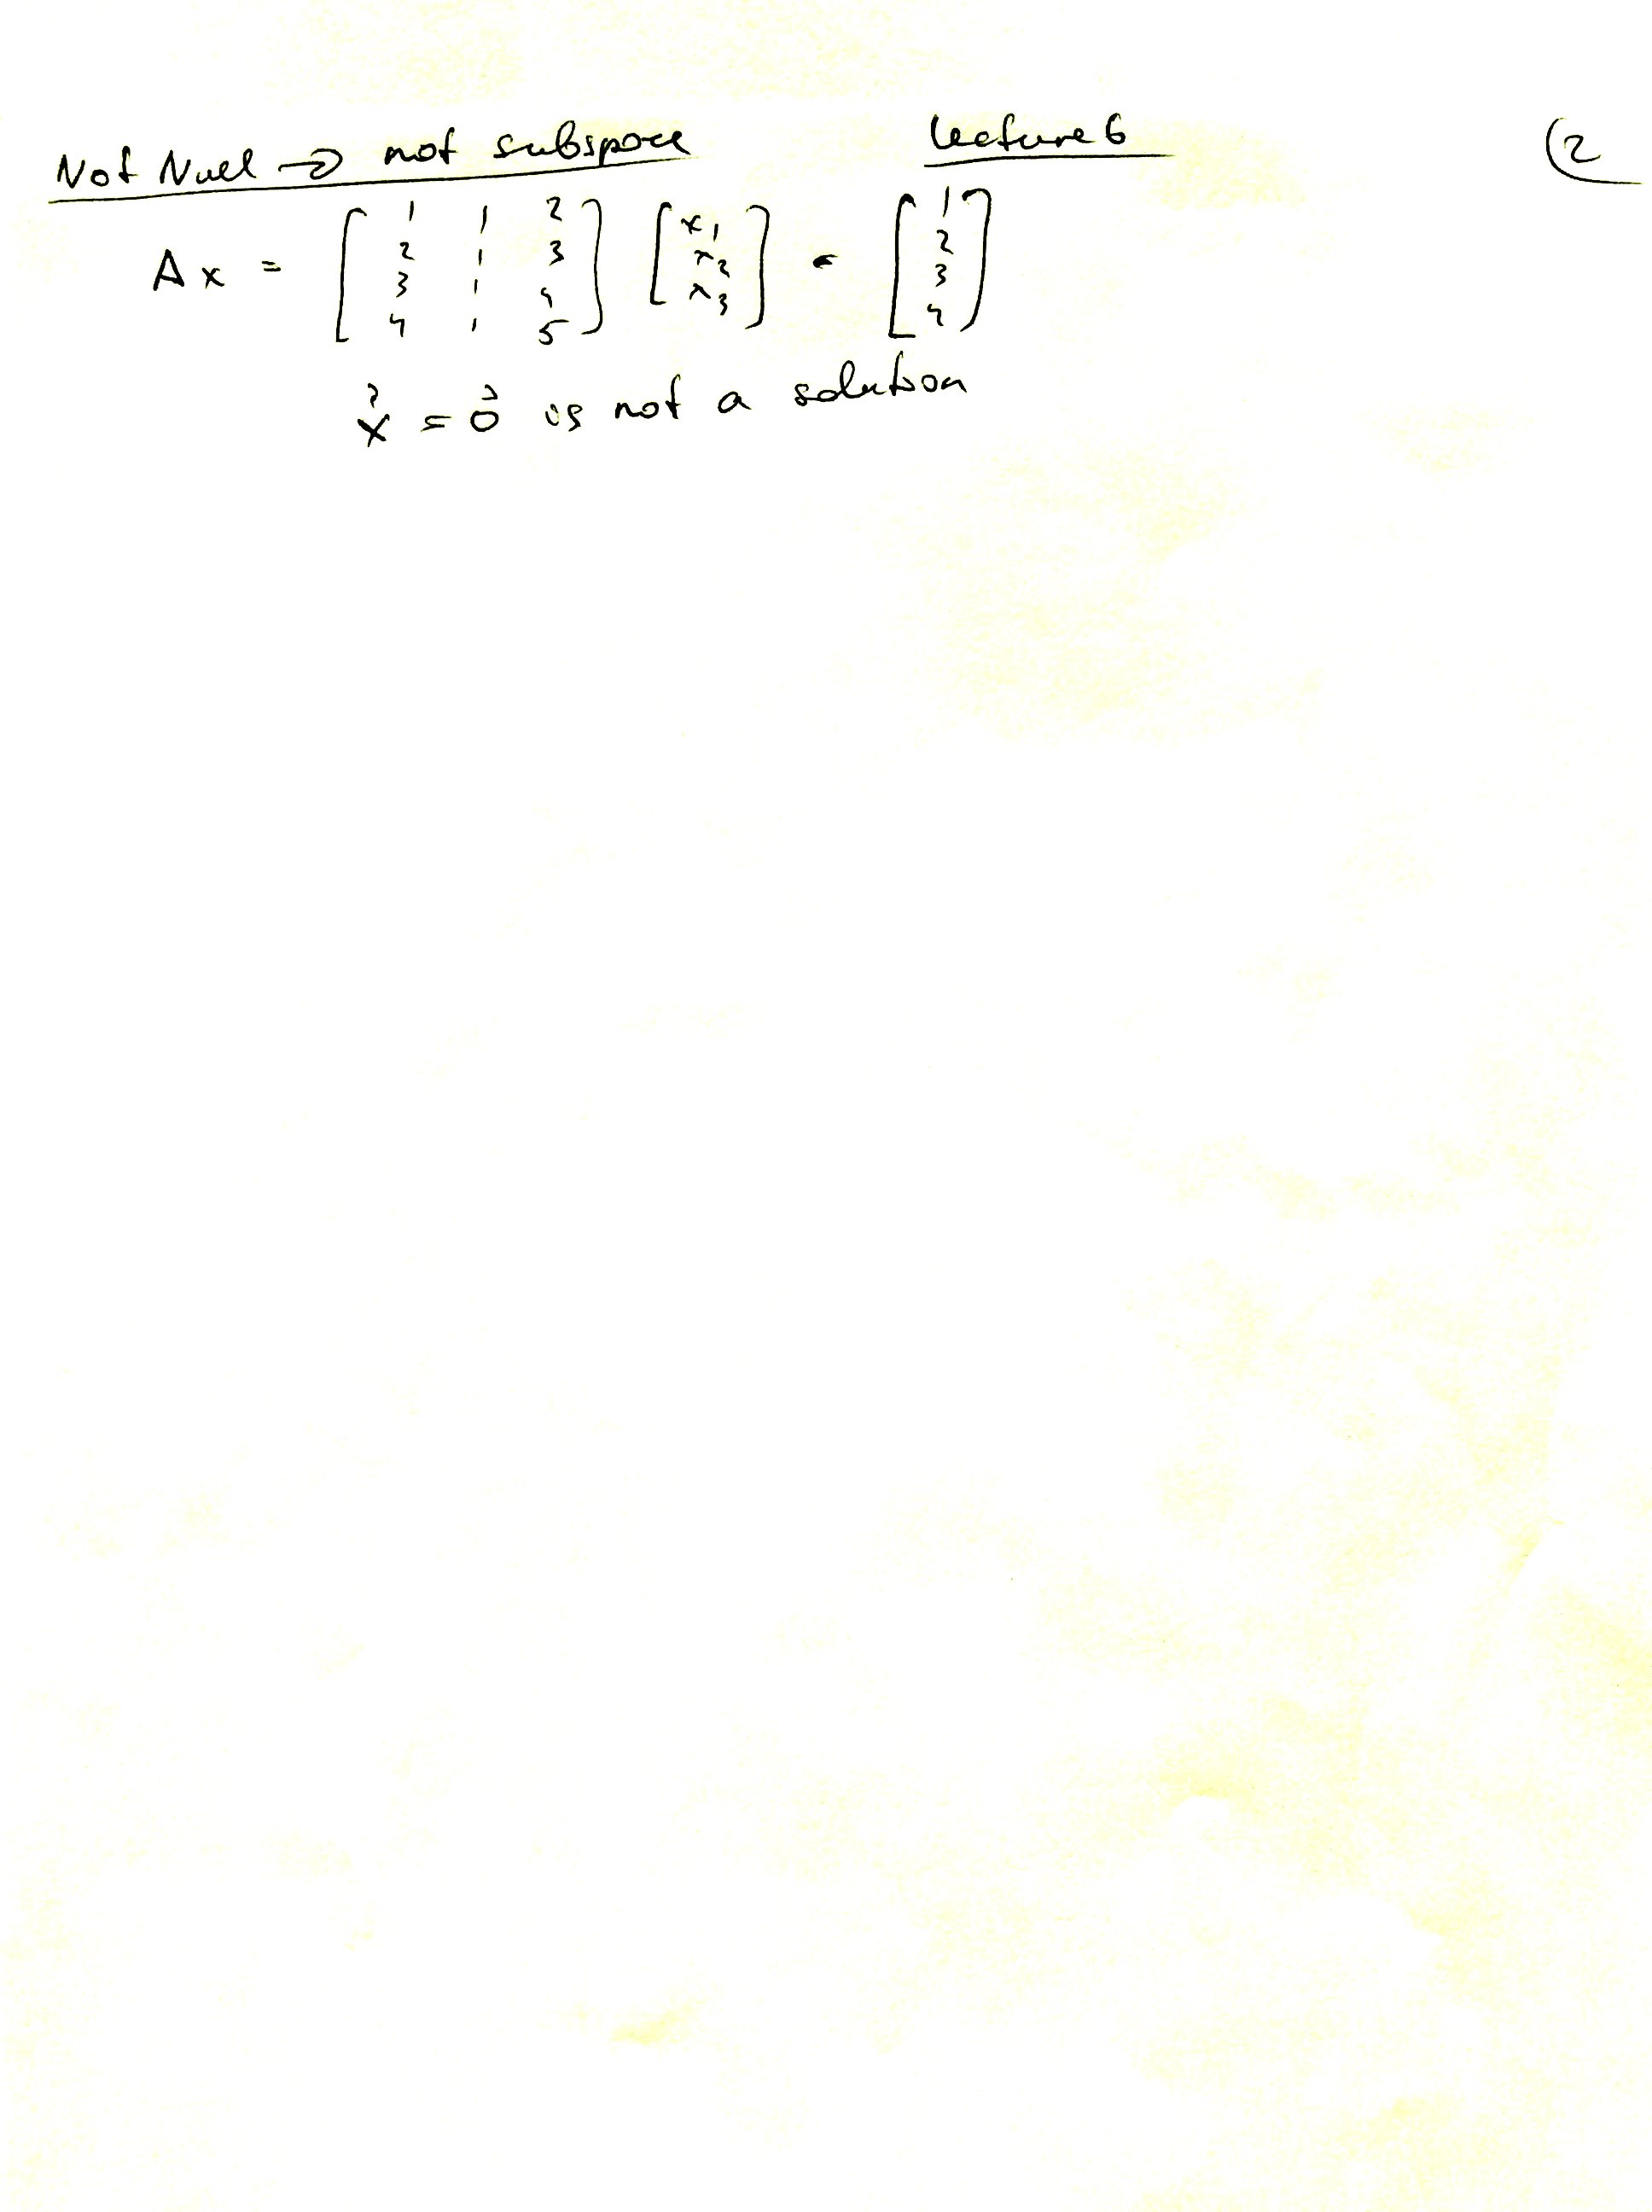 Not Null → not subspace Lecture 6 (2
Ax = [ 1 1 2 ; 2 1 3 ; 3 1 4 ; 4 1 5 ] [ x₁ ; x₂ ; x₃ ] = [ 1 ; 2 ; 3 ; 4 ]
x⃗ = 0⃗ is not a solution